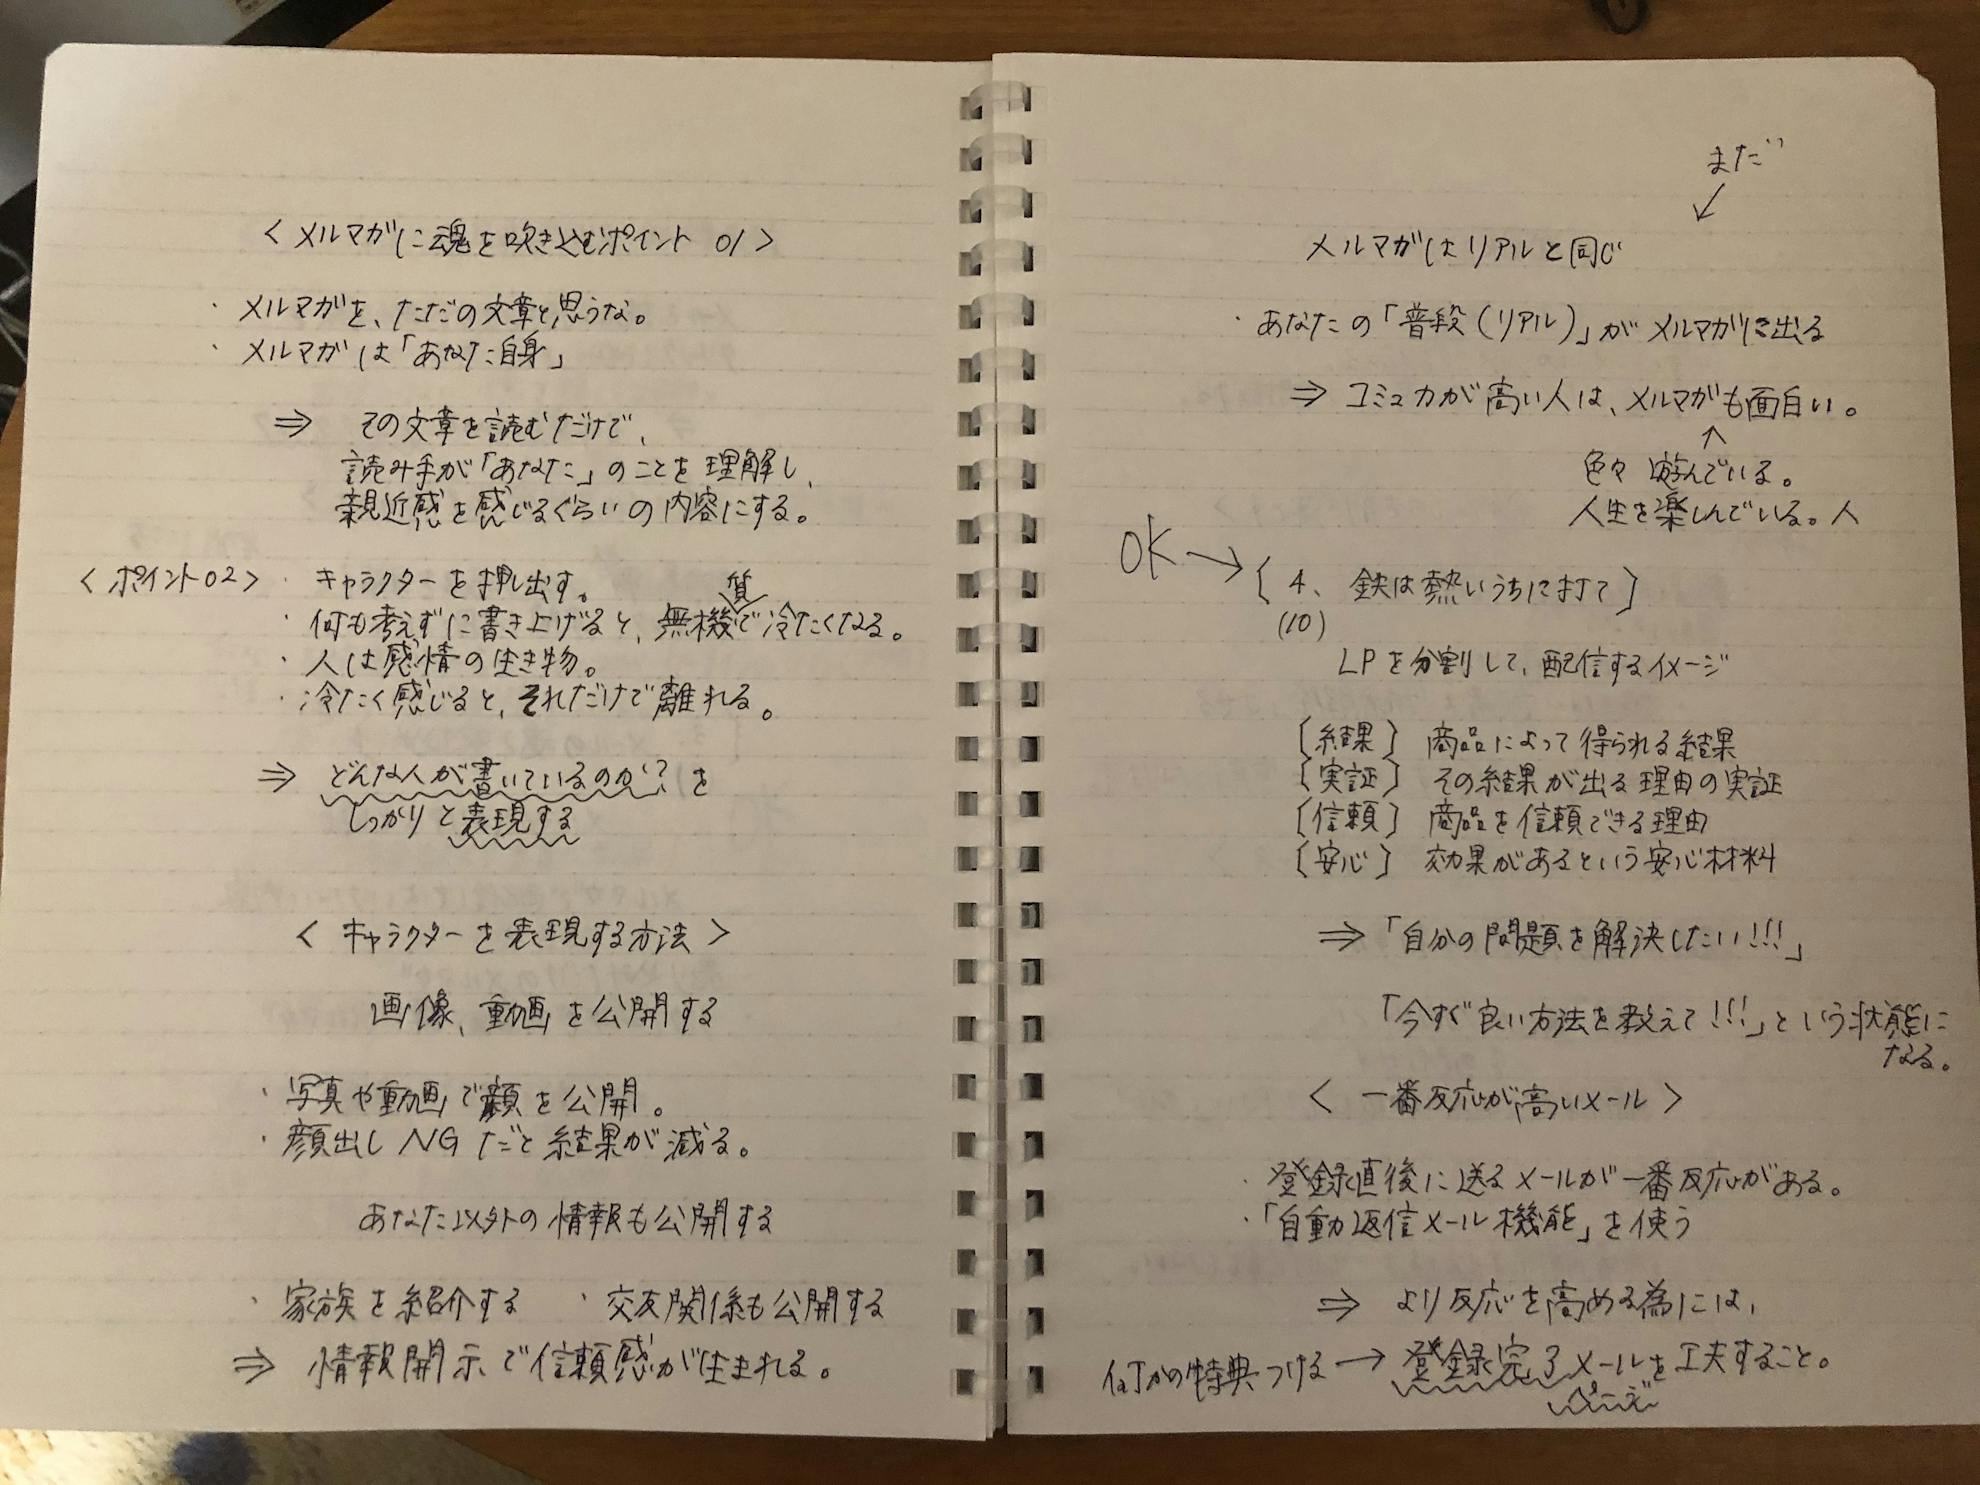 <メルマガに魂を吹き込むポイント 01>
・メルマガを、ただの文章と思うな。
・メルマガは「あなた自身」
⇒ その文章を読むだけで、
読み手が「あなた」のことを理解し、
親近感を感じるぐらいの内容にする。
<ポイント02> ・キャラクターを押し出す。
質
・何も考えずに書き上げると、無機で冷たくなる。
・人は感情の生き物。
・冷たく感じると、それだけで離れる。
⇒ どんな人が書いているのか?を
しっかりと表現する
<キャラクターを表現する方法>
画像、動画を公開する
・写真や動画で顔を公開。
・顔出しNGだと結果が減る。
あなた以外の情報も公開する
・家族を紹介する ・交友関係も公開する
⇒ 情報開示で信頼感が生まれる。
まだ
↙
メルマガはリアルと同じ
・あなたの「普段(リアル)」がメルマガに出る
⇒ コミュ力が高い人は、メルマガも面白い。
↑
色々遊んでいる。
人生を楽しんでいる。人
OK → [4、鉄は熱いうちに打て]
(10)
LPを分割して、配信するイメージ
[結果] 商品によって得られる結果
[実証] その結果が出る理由の実証
[信頼] 商品を信頼できる理由
[安心] 効果があるという安心材料
⇒「自分の問題を解決したい!!!」
「今すぐ良い方法を教えて!!!」という状態に
なる。
<一番反応が高いメール>
・登録直後に送るメールが一番反応がある。
・「自動返信メール機能」を使う
⇒ より反応を高める為には、
何かの特典つける → 登録完了メールを工夫すること。
ページ